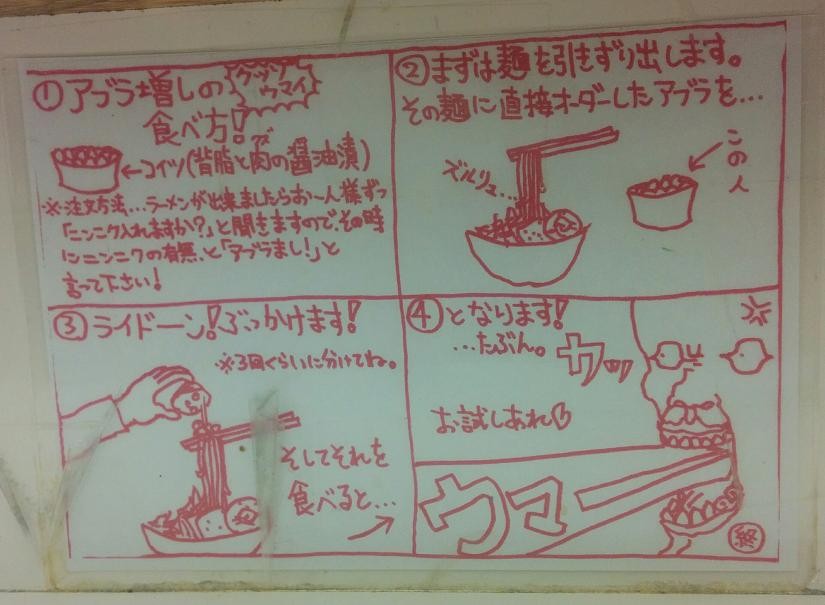 ①アブラ増しの
グッツリ
ウマイ
食べ方!
ズ
←コイツ(背脂と肉の醤油漬)
※注文方法...ラーメンが出来ましたらお一人様ずつ
「ニンニク入れますか?」と聞きますので、その時
にニンニクの有無、と「アブラまし!」と
言って下さい!
②まずは麺を引きずり出します。
その麺に直接オーダーしたアブラを...
ズルリュ...
この人
③ライドーン!ぶっかけます!
※3回くらいに分けてね。
そしてそれを
食べると...
④となります!
...たぶん。
カッ
お試しあれ♡
ウマー
終